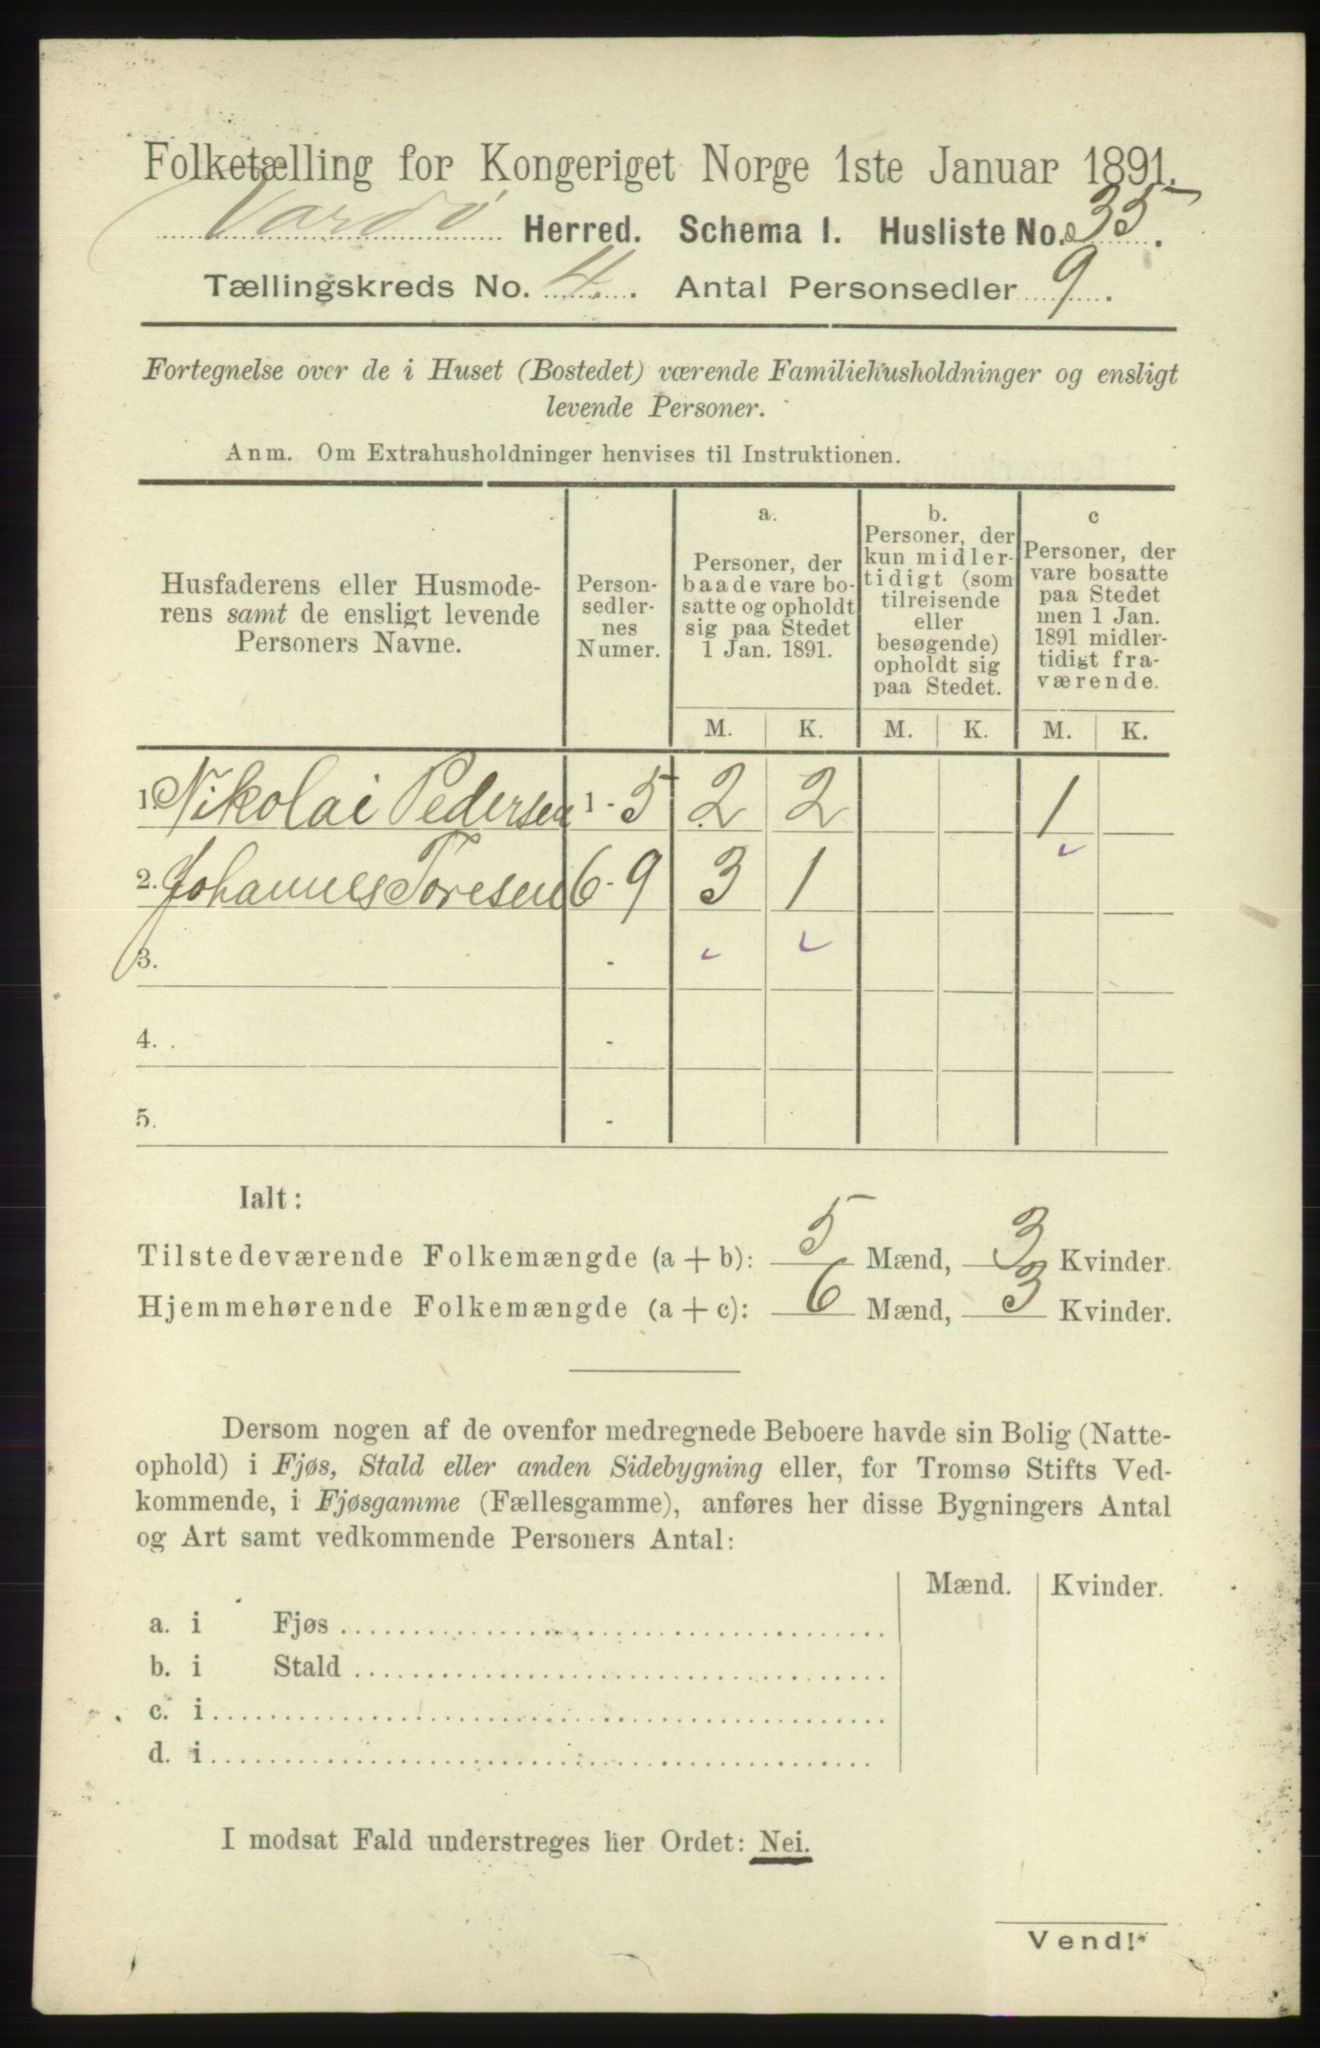 Folketælling for Kongeriget Norge 1ste Januar 1891.
Vardø Herred. Schema I. Husliste No. 35.
Tællingskreds No. 4. Antal Personsedler 9.
Fortegnelse over de i Huset (Bostedet) værende Familiehusholdninger og ensligt
levende Personer.
Anm. Om Extrahusholdninger henvises til Instruktionen.
Husfaderens eller Husmode-
rens samt de ensligt levende
Personers Navne.
Person-
sedler-
nes
Numer.
a.
Personer, der
baade vare bo-
satte og opholdt
sig paa Stedet
1 Jan. 1891.
b.
Personer, der
kun midler-
tidigt (som
tilreisende
eller
besøgende)
opholdt sig
paa Stedet.
c
Personer, der
vare bosatte
paa Stedet
men 1 Jan.
1891 midler-
tidigt fra-
værende.
M. K. M. K. M. K.
1. Nikolai Pedersen 1 - 5 2 2 1
2. Johannes Toresen 6 - 9 3 1
3. -
4. -
5. -
Ialt:
Tilstedeværende Folkemængde (a + b): 5 Mænd, 3 Kvinder.
Hjemmehørende Folkemængde (a + c): 6 Mænd, 3 Kvinder.
Dersom nogen af de ovenfor medregnede Beboere havde sin Bolig (Natte-
ophold) i Fjøs, Stald eller anden Sidebygning eller, for Tromsø Stifts Ved-
kommende, i Fjøsgamme (Fællesgamme), anføres her disse Bygningers Antal
og Art samt vedkommende Personers Antal:
Mænd. Kvinder.
a. i Fjøs
b. i Stald
c. i
d. i
I modsat Fald understreges her Ordet: Nei.
Vend!